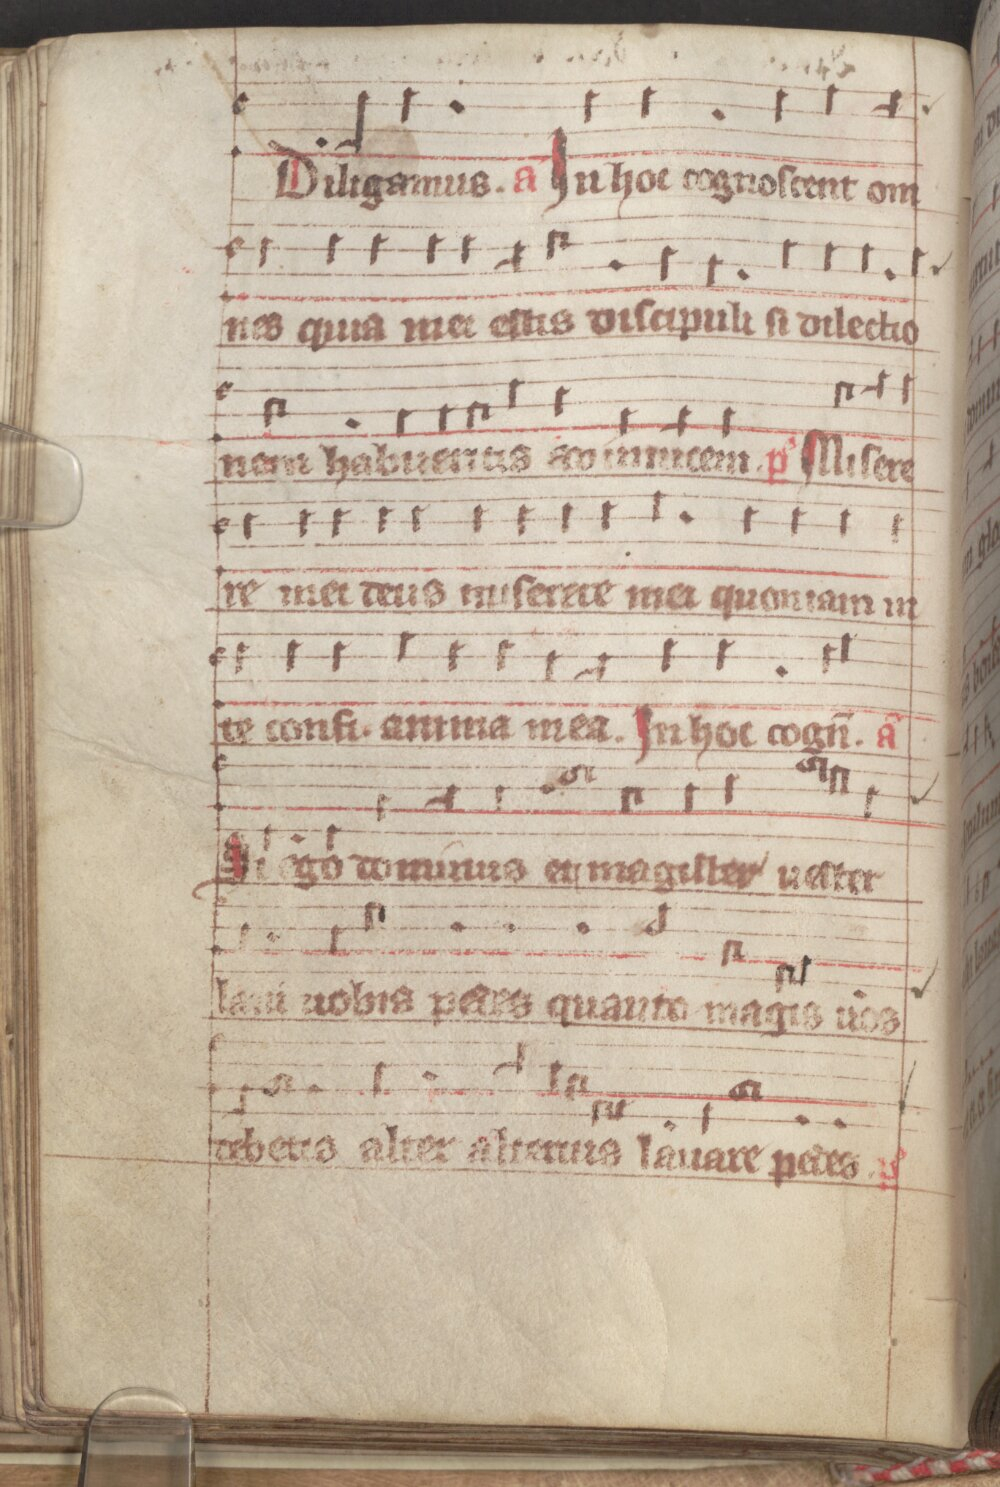 Diligamus. a In hoc cognoscent om
nes quia mei estis discipuli si dilectio
nem habueritis adinuicem. ps Misere
re mei deus miserere mei quoniam in
te confi. anima mea. In hoc cogn̄. ā
Si ego dominus et magister uester
laui uobis pedes quanto magis uos
debetis alter alterius lauare pedes. ps